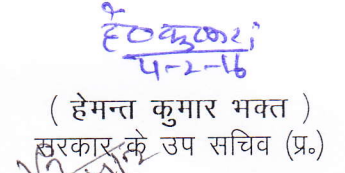 4-2-16
( हेमन्त कुमार भक्त )
सरकार के उप सचिव (प्र०)